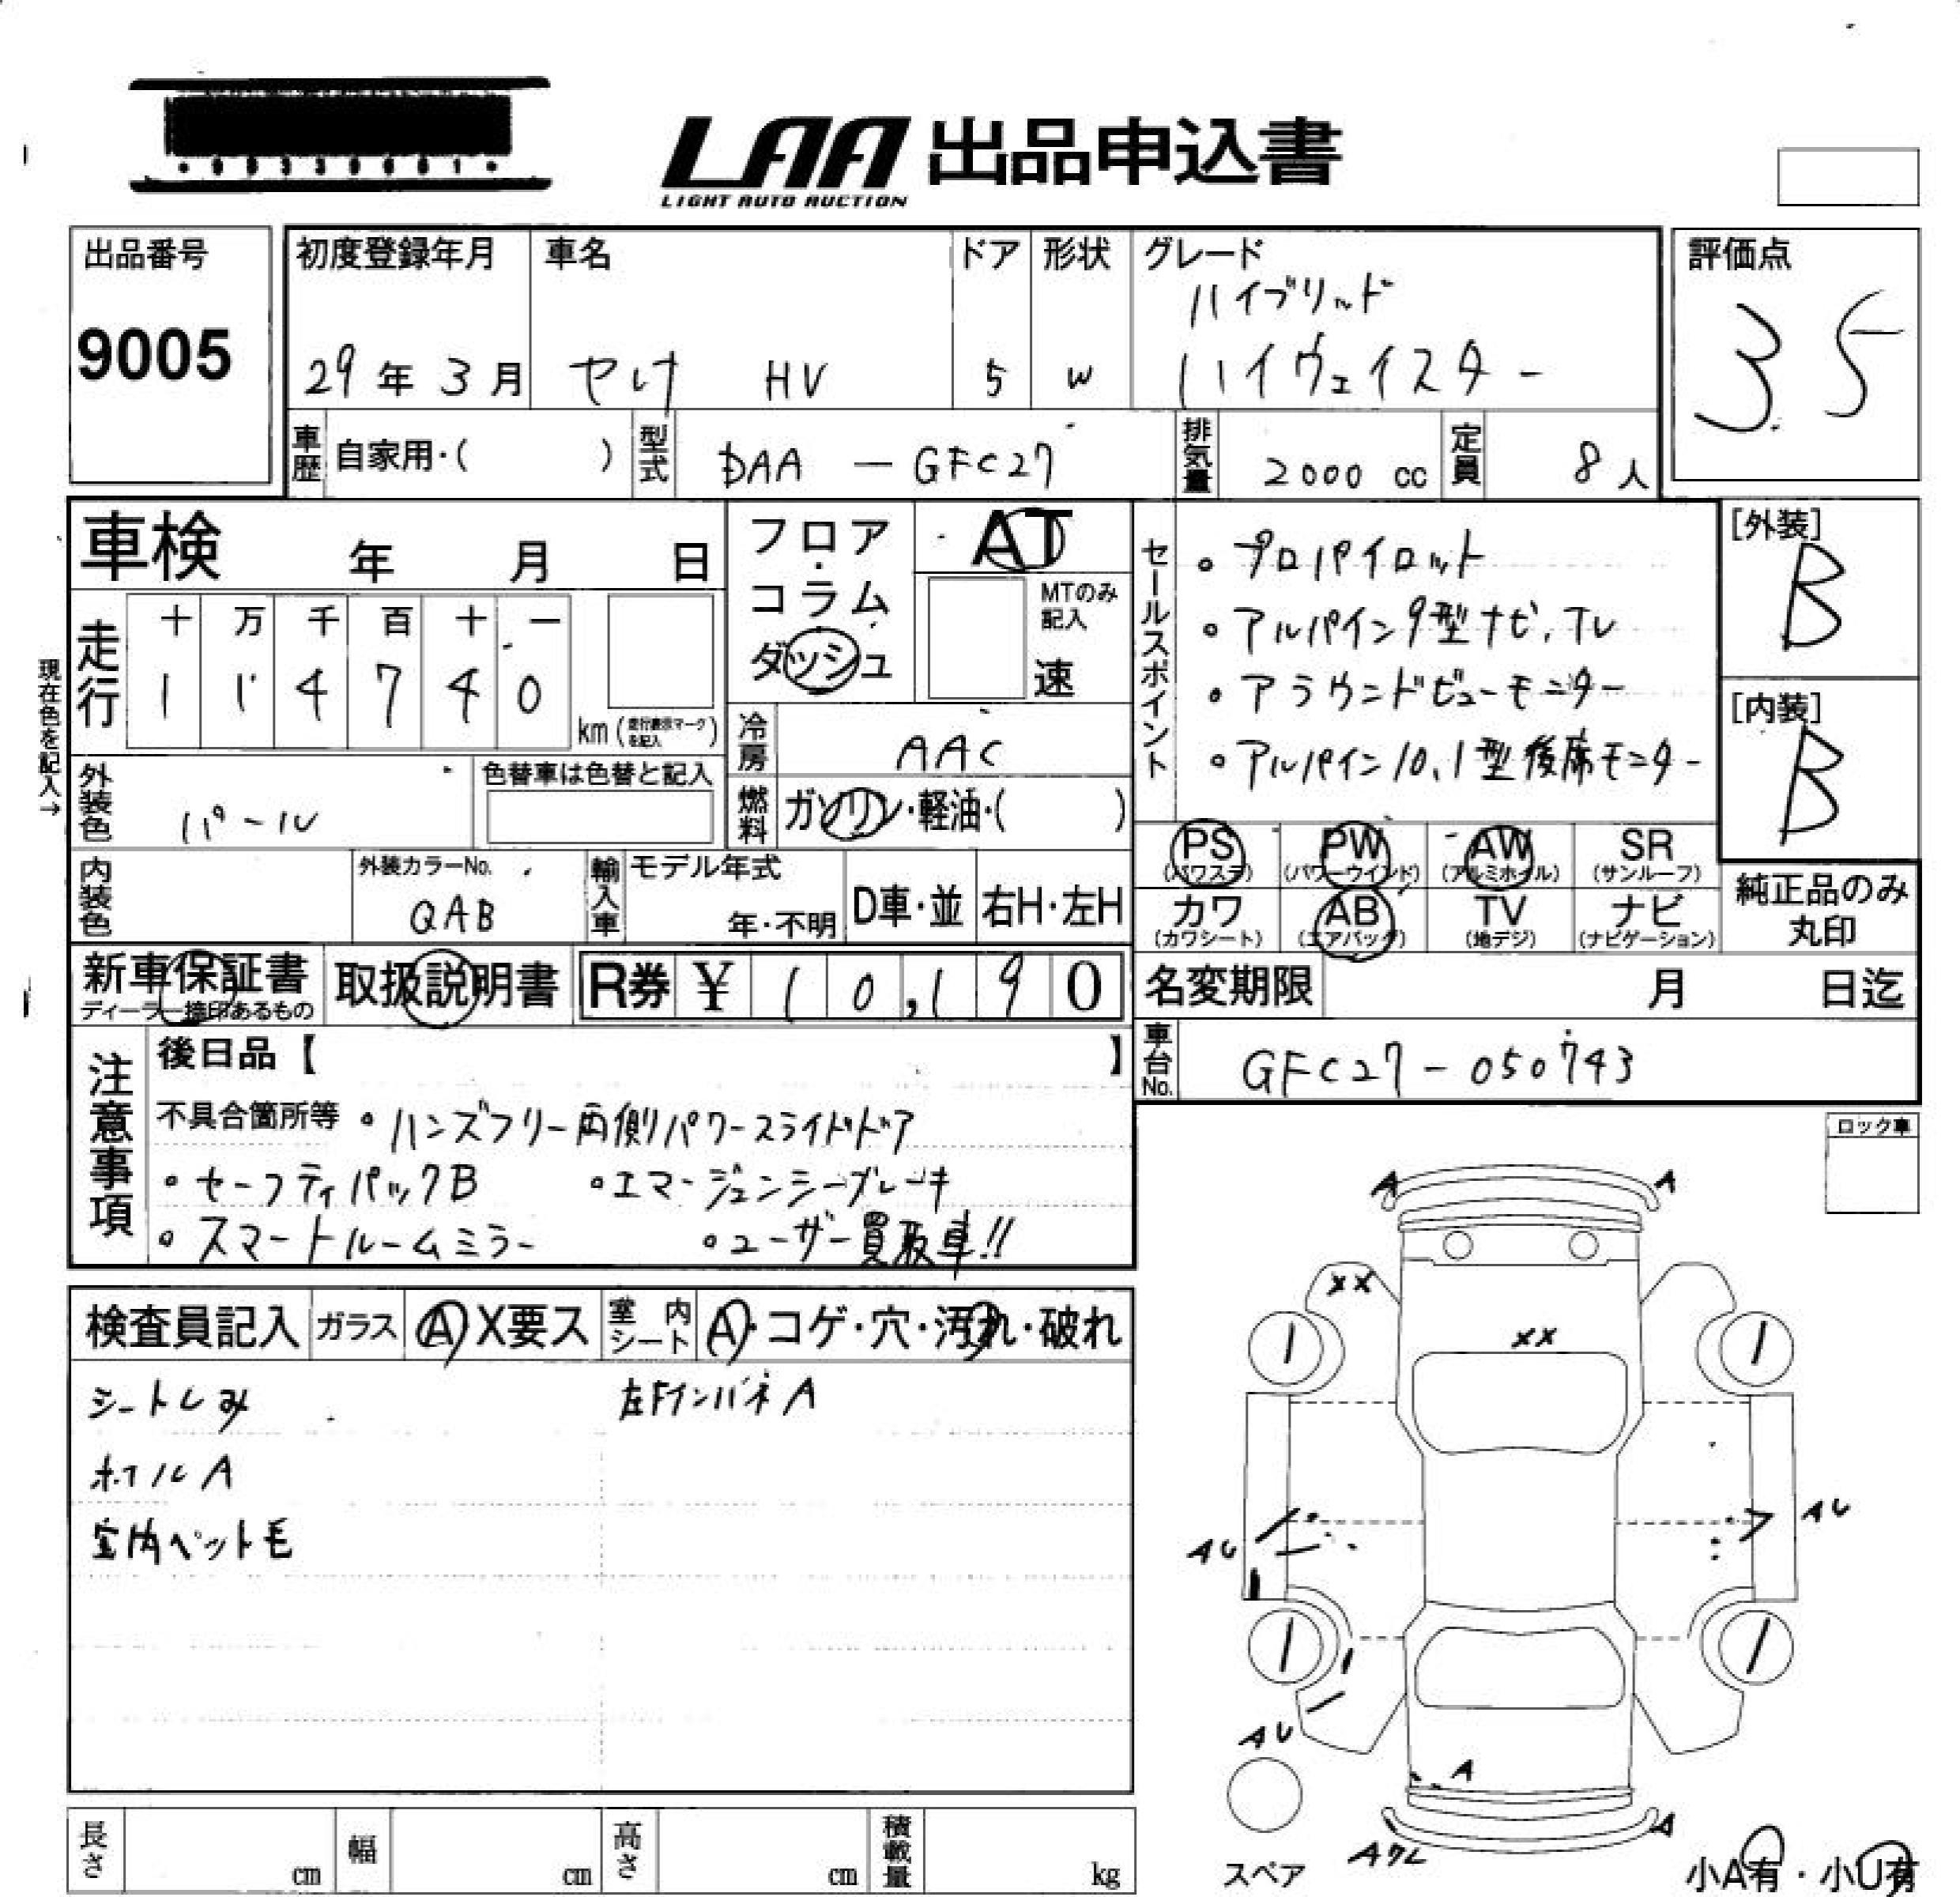 LAA 出品申込書
LIGHT AUTO AUCTION
出品番号
9005
初度登録年月 車名 ドア 形状 グレード
29年3月 セレナ HV 5 W ハイブリッド
ハイウェイスター
評価点
3.5
車歴 自家用・( ) 型式 DAA - GFC27 排気量 2000 cc 定員 8人
車検 年 月 日
フロア・コラム ダッシュ
AT
MTのみ記入
速
走行
十 万 千 百 十 一
1 1 4 7 4 0
km (走行表示マークを記入)
現在色を記入→
冷房 AAC
燃料 ガソリン・軽油・( )
外装色 パール
色替車は色替と記入
内装色
外装カラーNo.
QAB
輸入車 モデル年式
年・不明 D車・並 右H・左H
セールスポイント
。プロパイロット
。アルパイン9型ナビ、TV
。アラウンドビューモニター
。アルパイン10.1型後席モニター
[外装]
B
[内装]
B
PS PW AW SR
(パワステ) (パワーウインド) (アルミホイル) (サンルーフ)
カワ AB TV ナビ
(カワシート) (エアバッグ) (地デジ) (ナビゲーション)
純正品のみ
丸印
新車保証書
ディーラー捺印あるもの
取扱説明書
R券 ¥ 10,190
名変期限 月 日迄
車台No. GFC27-050743
注意事項
後日品【 】
不具合箇所等 。ハンズフリー両側パワースライドドア
。セーフティパックB 。エマージェンシーブレーキ
。スマートルームミラー 。ユーザー買取車!!
ロック車
検査員記入 ガラス A X要ス 室内シート A・コゲ・穴・汚れ・破れ
シートしみ 左Fインパネ A
ホイル A
室内ペット毛
A A
XX
XX
AU AU
AU
A
A
スペア
小A有・小U有
長さ cm 幅 cm 高さ cm 積載量 kg